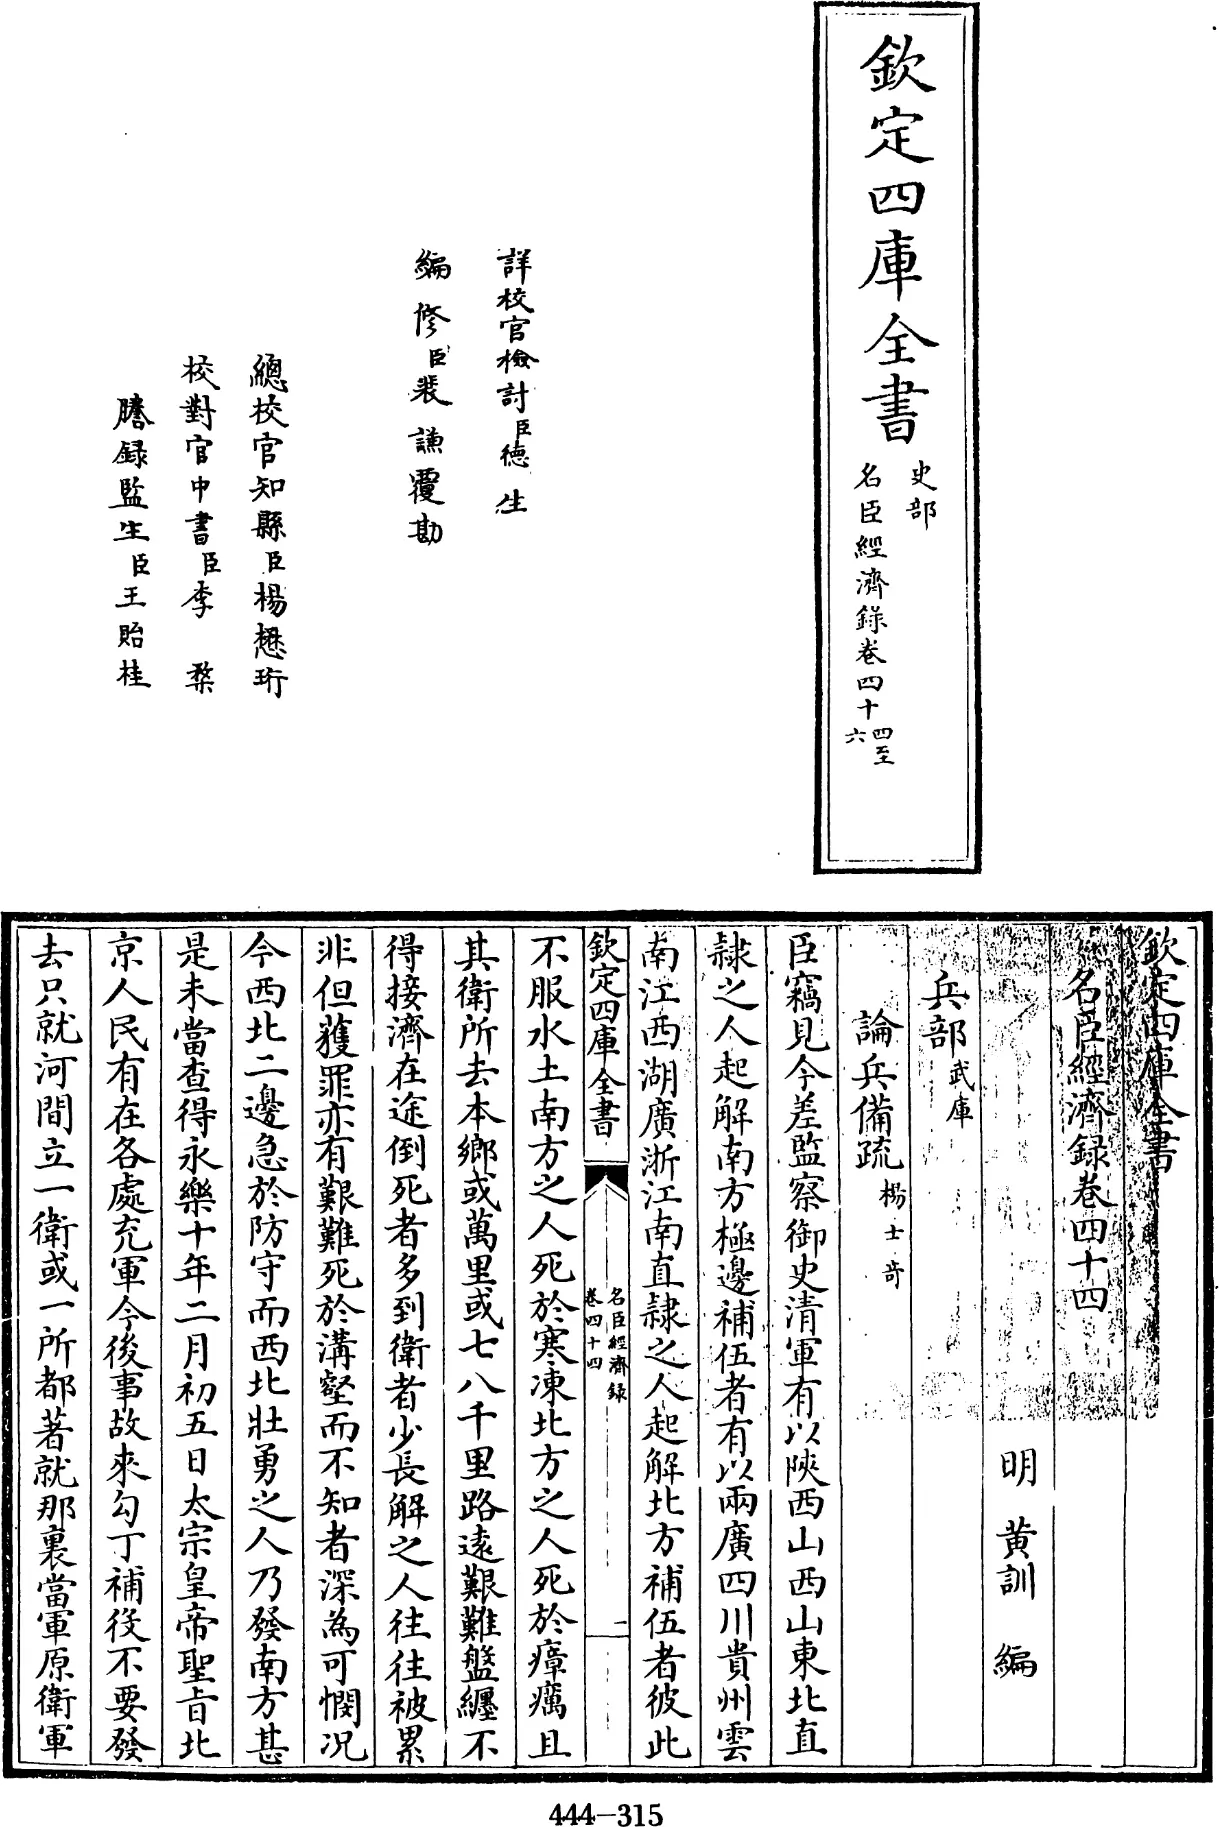 欽定四庫全書
史部
名臣經濟錄卷四十四至六
詳校官檢討臣德生
編修臣裴謙覆勘
總校官知縣臣楊懋珩
校對官中書臣李楘
謄録監生臣王貽桂
欽定四庫全書
名臣經濟録卷四十四
明 黄訓 編
兵部武庫
論兵備疏楊士奇
臣竊見今差監察御史清軍有以陜西山西山東北直
隷之人起解南方極邊補伍者有以兩廣四川貴州雲
南江西湖廣浙江南直隷之人起解北方補伍者彼此
欽定四庫全書
名臣經濟録
卷四十四
一
不服水土南方之人死於寒凍北方之人死於瘴癘且
其衛所去本鄉或萬里或七八千里路逺艱難盤纒不
得接濟在途倒死者多到衛者少長解之人往往被累
非但獲罪亦有艱難死於溝壑而不知者深為可憫况
今西北二邊急於防守而西北壯勇之人乃發南方甚
是未當查得永樂十年二月初五日太宗皇帝聖旨北
京人民有在各處充軍今後事故來勾丁補役不要發
去只就河間立一衛或一所都著就那裏當軍原衛軍
444-315